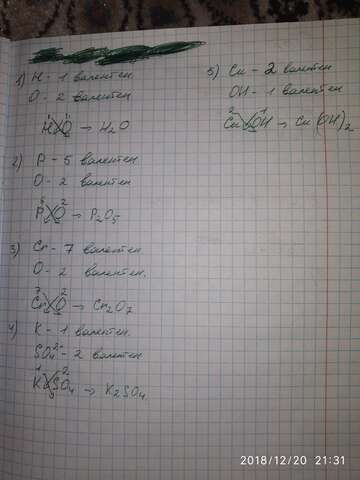 1) H - 1 валентен
O - 2 валентен
H O → H₂O
2) P - 5 валентен
O - 2 валентен
5 2
P O → P₂O₅
3) Cr - 7 валентен
O - 2 валентен.
7 2
Cr O → Cr₂O₇
4) K - 1 валентен.
SO₄²⁻ - 2 валентен
1 2
K SO₄ → K₂SO₄
5) Cu - 2 валентен
OH - 1 валентен
2 1
Cu OH → Cu(OH)₂
2018/12/20 21:31